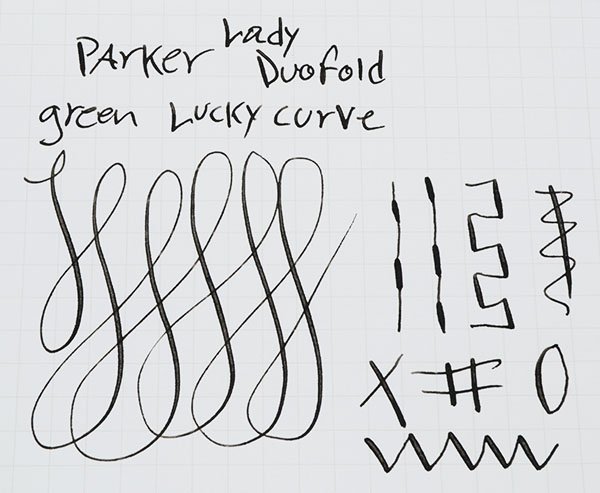 Parker Lady
Duofold
green Lucky curve
X # 0